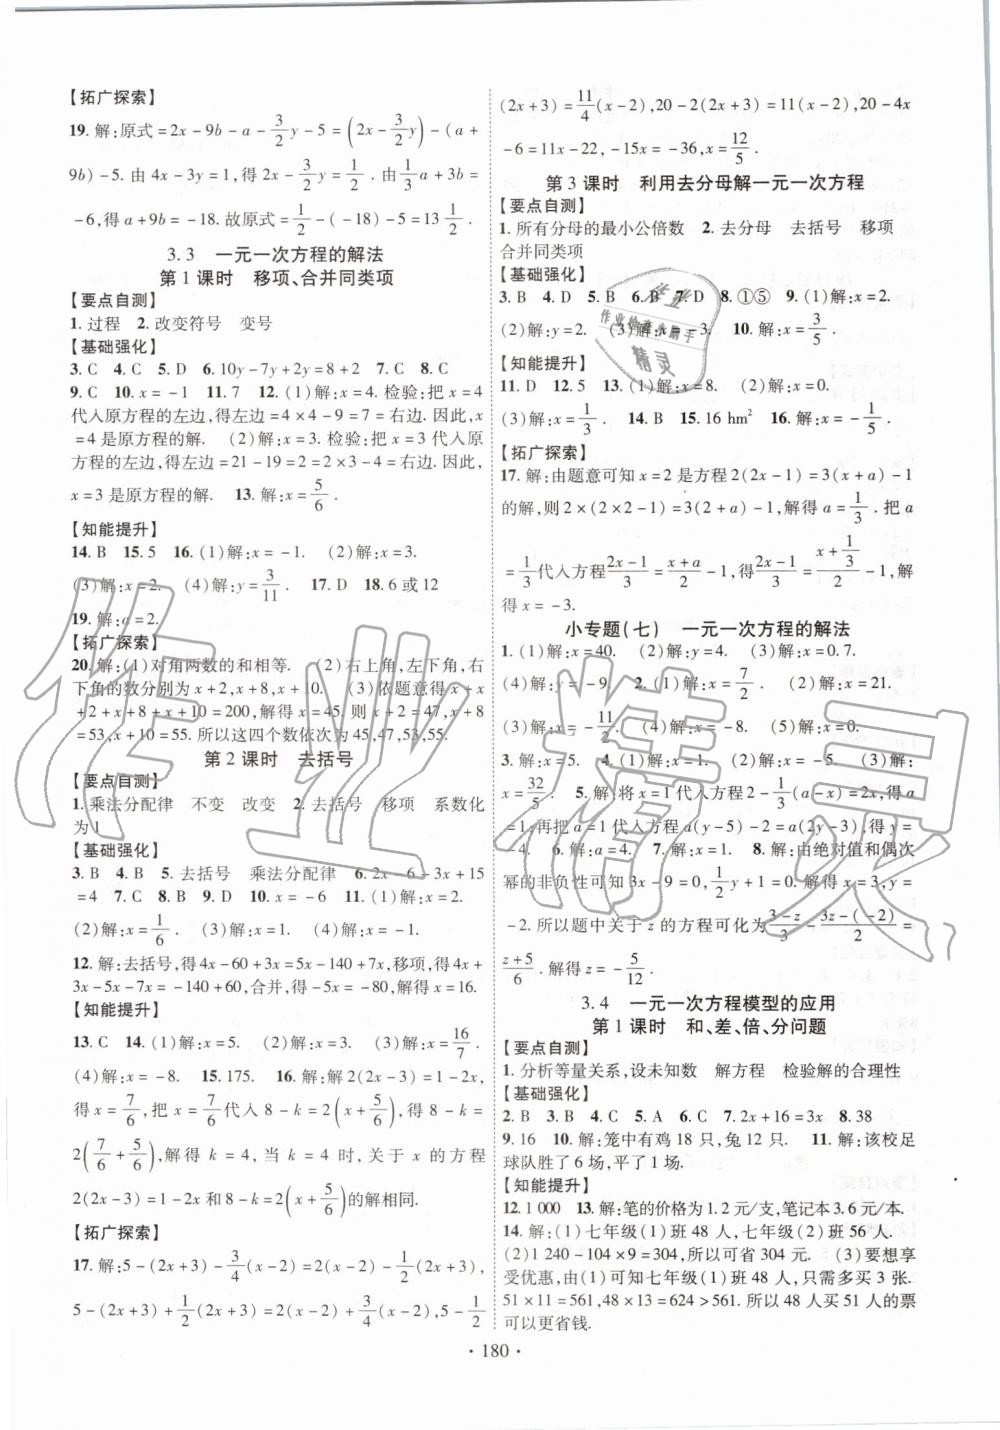 【拓广探索】
19. 解:原式=2x-9b-a-3/2y-5=(2x-3/2y)-(a+
9b)-5. 由 4x-3y=1,得 2x-3/2y=1/2. 由1/3a+3b=
-6,得 a+9b=-18. 故原式=1/2-(-18)-5=13 1/2.
3.3 一元一次方程的解法
第 1 课时 移项、合并同类项
【要点自测】
1. 过程 2. 改变符号 变号
【基础强化】
3. C 4. C 5. D 6. 10y-7y+2y=8+2 7. C 8. C
9. C 10. x=-1 11. 7 12. (1)解:x=4. 检验:把 x=4
代入原方程的左边,得左边=4×4-9=7=右边. 因此,x
=4 是原方程的解. (2)解:x=3. 检验:把 x=3 代入原
方程的左边,得左边=21-19=2=2×3-4=右边. 因此,
x=3 是原方程的解. 13. 解:x=5/6.
【知能提升】
14. B 15. 5 16. (1)解:x=-1. (2)解:x=3.
(3)解:x=2. (4)解:y=3/11. 17. D 18. 6 或 12
19. 解:a=2.
【拓广探索】
20. 解:(1)对角两数的和相等. (2)右上角,左下角,右
下角的数分别为 x+2,x+8,x+10. (3)依题意得 x+x
+2+x+8+x+10=200,解得 x=45. 则 x+2=47,x+8
=53,x+10=55. 所以这四个数依次为 45,47,53,55.
第 2 课时 去括号
【要点自测】
1. 乘法分配律 不变 改变 2. 去括号 移项 系数化
为 1
【基础强化】
3. B 4. B 5. 去括号 乘法分配律 6. 2x-6-3x+15
=4 7. C 8. D 9. D 10. x=-6 11. (1)解:x=4.
(2)解:x=1/6. (3)解:x=1. (4)解:x=-1.
12. 解:去括号,得 4x-60+3x=5x-140+7x,移项,得 4x+
3x-5x-7x=-140+60,合并,得-5x=-80,解得 x=16.
【知能提升】
13. C 14. (1)解:x=5. (2)解:x=3. (3)解:x=16/7.
(4)解:x=-8. 15. 175. 16. 解:解 2(2x-3)=1-2x,
得 x=7/6,把 x=7/6代入 8-k=2(x+5/6),得 8-k=
2(7/6+5/6),解得 k=4,当 k=4 时,关于 x 的方程
2(2x-3)=1-2x 和 8-k=2(x+5/6)的解相同.
【拓广探索】
17. 解:5-(2x+3)-3/4(x-2)=2(x-2)-1/2(2x+3),
5-(2x+3)+1/2(2x+3)=2(x-2)+3/4(x-2),5-1/2
(2x+3)=11/4(x-2),20-2(2x+3)=11(x-2),20-4x
-6=11x-22,-15x=-36,x=12/5.
第 3 课时 利用去分母解一元一次方程
【要点自测】
1. 所有分母的最小公倍数 2. 去分母 去括号 移项
合并同类项
【基础强化】
3. B 4. D 5. B 6. B 7. D 8. ①⑤ 9. (1)解:x=2.
(2)解:y=2. (3)解:x=-3. 10. 解:x=3/5.
【知能提升】
11. D 12. 5 13. (1)解:x=8. (2)解:x=0.
(3)解:x=1/3. 14. B 15. 16 hm² 16. 解:x=-1/5.
【拓广探索】
17. 解:由题意可知 x=2 是方程 2(2x-1)=3(x+a)-1
的解,则 2×(2×2-1)=3(2+a)-1,解得 a=1/3. 把 a
=1/3代入方程(2x-1)/3=(x+a)/2-1,得(2x-1)/3=(x+1/3)/2-1,解
得 x=-3.
小专题(七) 一元一次方程的解法
1. (1)解:x=40. (2)解:y=4. (3)解:x=0.7.
(4)解:y=-9. 2. (1)解:x=7/2. (2)解:x=21.
(3)解:x=-11/2. (4)解:x=-8. (5)解:x=0.
3. 解:x=0. 4. (1)解:x=1. (2)解:x=2. (3)解:
x=32/5. 5. 解:将 x=1 代入方程 2-1/3(a-x)=2x,得 a
=1,再把 a=1 代入方程 a(y-5)-2=a(2y-3),得 y=
-4. 6. 解:a=4. 7. 解:x=1. 8. 解:由绝对值和偶次
幂的非负性可知 3x-9=0,1/2y+1=0. 解得 x=3,y=
-2. 所以题中关于 z 的方程可化为(3-z)/3-(3z-(-2))/2=
(z+5)/6. 解得 z=-5/12.
3.4 一元一次方程模型的应用
第 1 课时 和、差、倍、分问题
【要点自测】
1. 分析等量关系,设未知数 解方程 检验解的合理性
【基础强化】
2. B 3. B 4. C 5. A 6. C 7. 2x+16=3x 8. 38
9. 16 10. 解:笼中有鸡 18 只,兔 12 只. 11. 解:该校足
球队胜了 6 场,平了 1 场.
【知能提升】
12. 1 000 13. 解:笔的价格为 1.2 元/支,笔记本 3.6 元/本.
14. 解:(1)七年级(1)班 48 人,七年级(2)班 56 人.
(2)1 240-104×9=304,所以可省 304 元. (3)要想享
受优惠,由(1)可知七年级(1)班 48 人,只需多买 3 张.
51×11=561,48×13=624>561. 所以 48 人买 51 人的票
可以更省钱.
· 180 ·
作业精灵
作业检查小助手
精灵